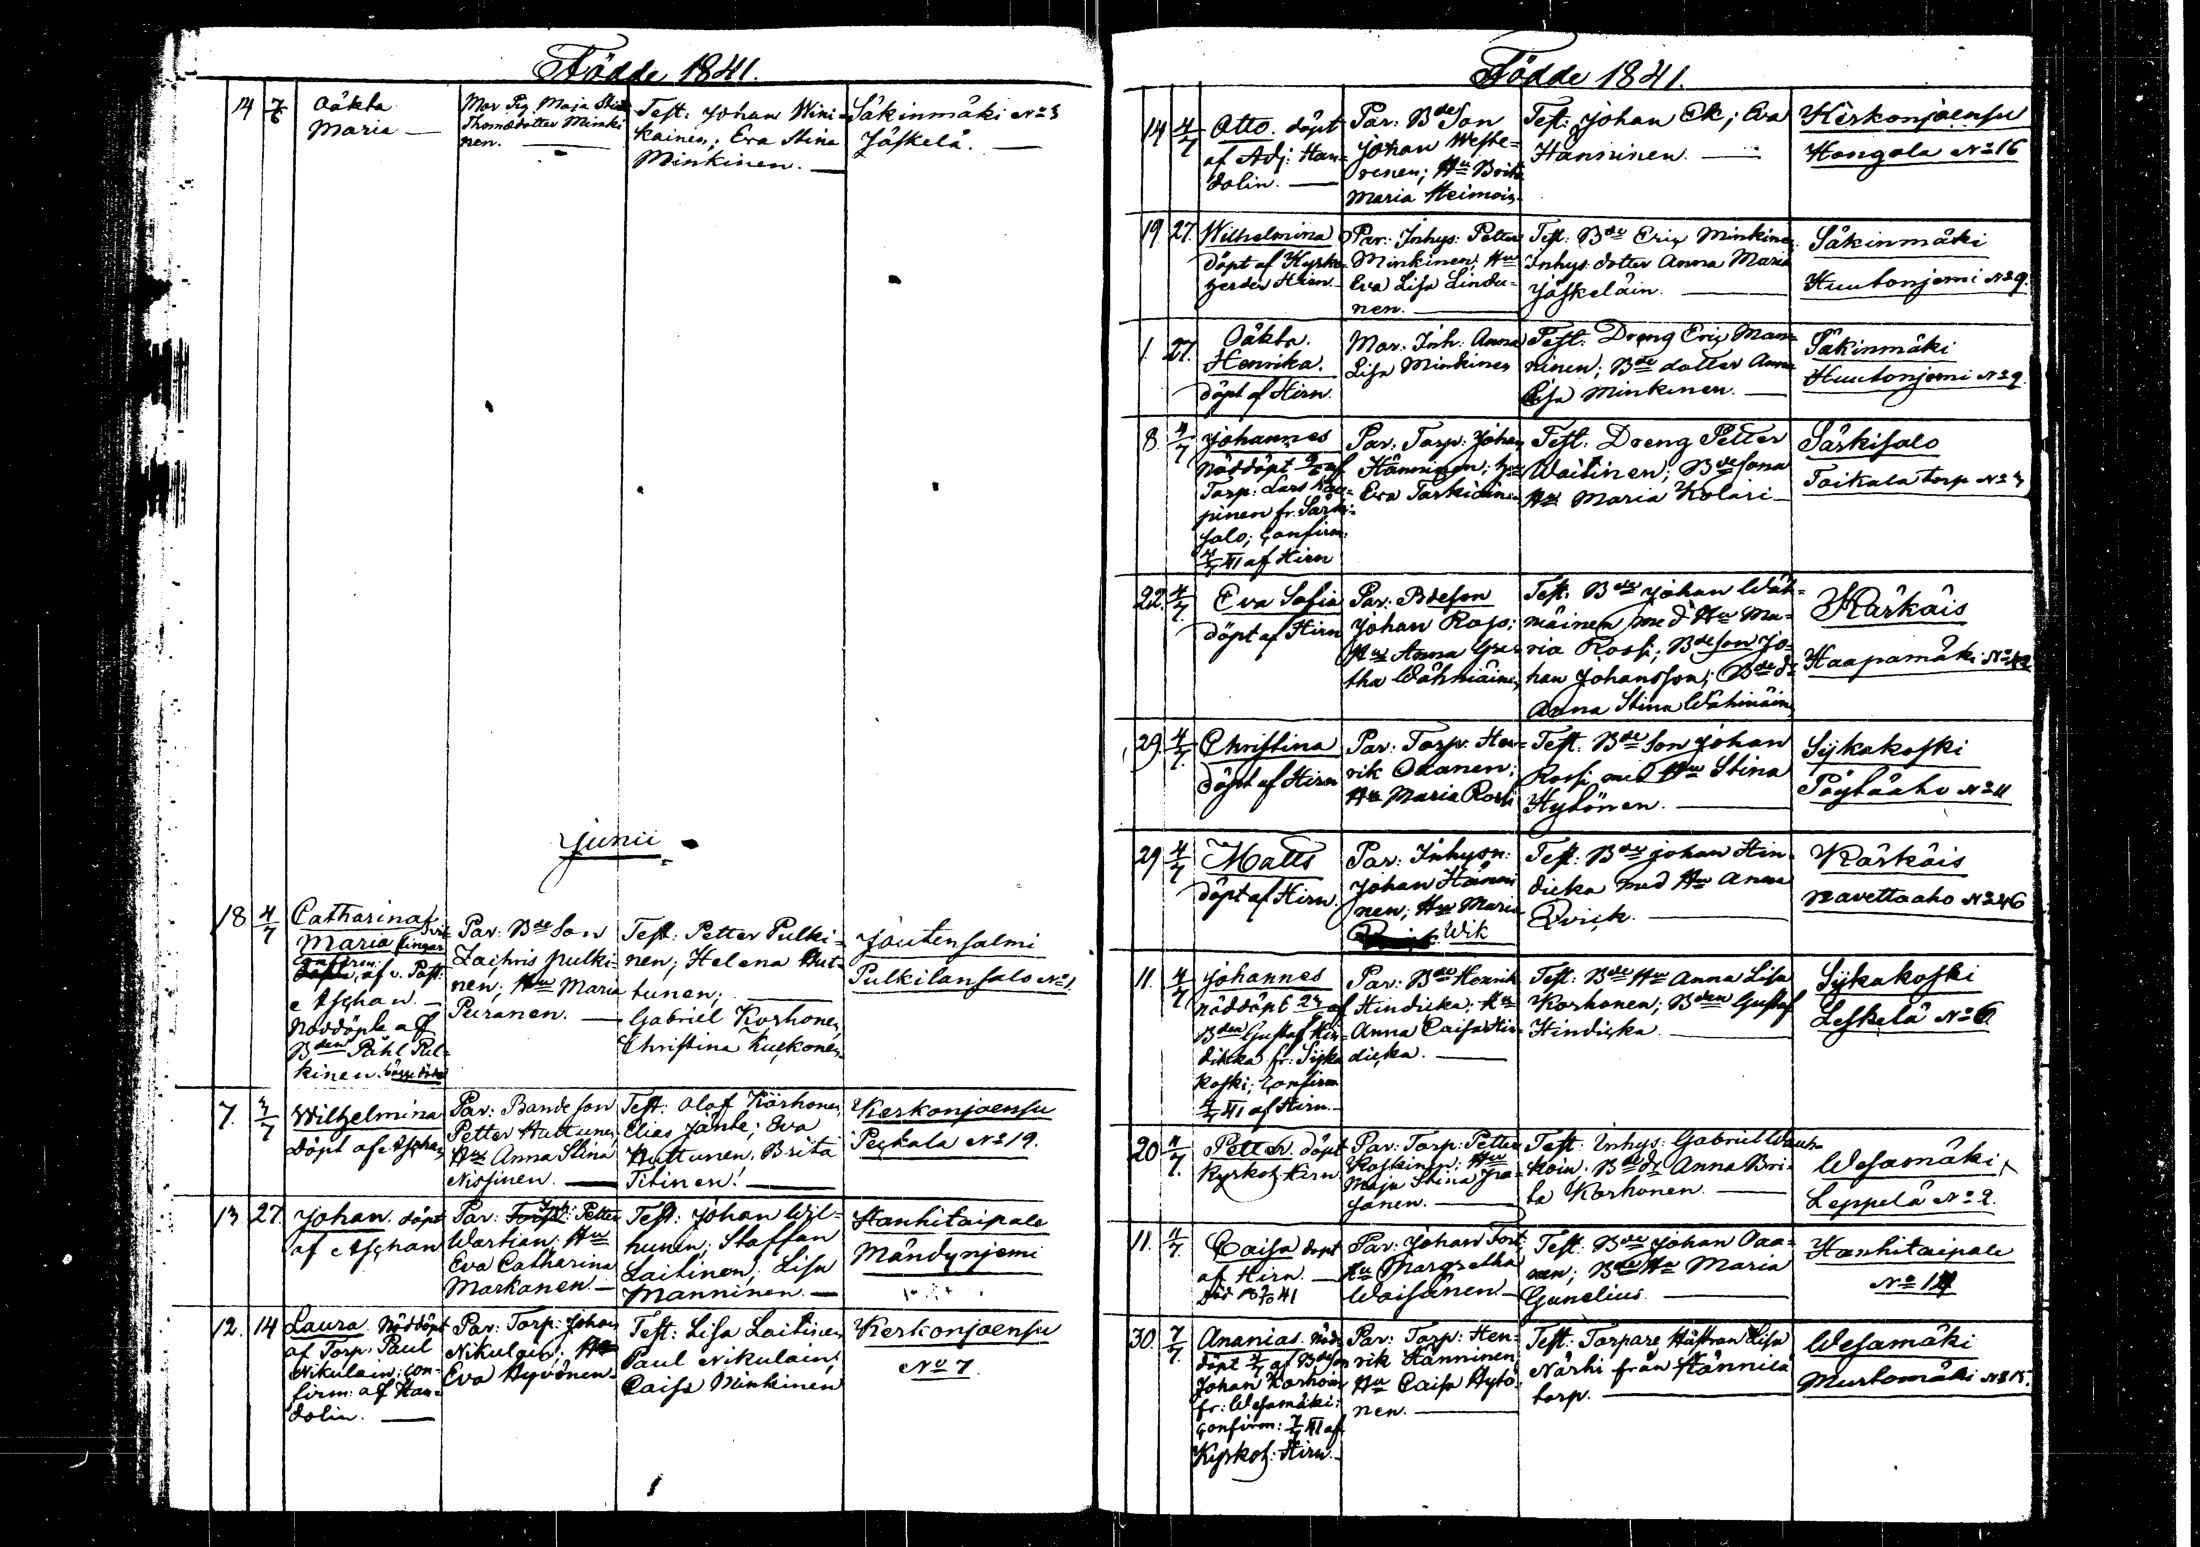 Födde 1841.
14 7/6 Oäkta
Maria —
Mor Pig Maja Stin
Thomædotter Minki
nen. —
Test: Johan Wini-
kainen; Eva Stina
Minkinen. —
Säkinmäki No 3
Jäskelä. —
Junii
18 4/7 Catharina
Maria
confirm:
af v. Past:
Aschan. —
Nöddöpt af
Bden Påhl Pul-
kinen
Par: Bde Son
Zachris Pulki-
nen; Hu Maria
Peiranen. —
Test: Petter Pulki-
nen; Helena Hut-
tunen; —
Gabriel Korhonen,
Christina Kuckonen
Joutensalmi
Pulkilansalo No 1
7. 4/7 Wilhelmina
döpt af Aschan
Par: Bondeson
Petter Huttunen,
Hu Anna Stina
Nissinen. —
Test: Olof Korhonen,
Elias Jänte; Eva
Huttunen, Brita
Titinen! —
Kerkonjoensu
Peckala No 19.
13 27 Johan döpt
af Aschan
Par: Petter
Wartian; Hu
Eva Catharina
Markanen —
Test: Johan Wil-
hunen; Staffan
Laitinen; Lisa
Manninen. —
Hanhitaipale
Mändynjemi
12. 14 Laura. Nöddöpt
af Torp: Paul
Nikulain; con-
firm: af Han-
dolin. —
Par: Torp: Johan
Nikulain; Hu
Eva Hyvönen
Test: Lisa Laitinen
Paul Nikulain;
Caisa Minkinen
Kerkonjoensu
No 7.
Födde 1841.
14 4/7 Otto. döpt
af Adj: Han-
dolin. —
Par: Bde Son
Johan Weste-
renen; Hu Brita
Maria Heimoin
Test: Johan Ek; Eva
Hänninen. —
Kerkonjoensu
Hongola No 16
19 27. Wilhelmina
döpt af Kyrko-
herden Hirn.
Par: Inhys: Petter
Minkinen; Hu
Eva Lisa Lindu-
nen. —
Test: Bde Eric Minkinen
Inhys: dotter Anna Maria
Jäskeläin. —
Säkinmäki
Huutonjemi No 9.
1. 27. Oäkta.
Henrika.
döpt af Hirn.
Mor: Inh: Anna
Lisa Minkinen
Test: Dreng Eric Man-
ninen; Bde dotter Anna
Lisa Minkinen. —
Säkinmäki
Huutonjemi No 9.
8. 4/7 Johannes
Nöddöpt af
Torp: Lars
pinen fr. Särki-
salo; confirm:
4/7 41 af Hirn
Par. Torp: Johan
Hänninen; Hu
Eva Tarkiainen
Test. Dreng Petter
Waitinen; Bdesons
Hu Maria Kolari —
Särkisalo
Toikala torp No 3
22. 4/7. Eva Sofia
döpt af Hirn
Par: Bdeson
Johan Ross:
Hu Anna Gre-
tha Wähmäinen
Test: Bde Johan Wäh-
mäinen med Hu Ma-
ria Rossi; Bdeson Jo-
han Johansson; Bde dr
Anna Stina Wähmäin
Kärkäis
Haapamäki No 42
29. 4/7. Christina
döpt af Hirn
Par: Torp: Hen-
rik Oxanen;
Hu Maria Rossi
Test. Bde Son Johan
Rossi med Hu Stina
Hytönen. —
Sijkakoski
Pöytäaho No 11
29 4/7 Matts
döpt af Hirn.
Par: Inhysn:
Johan Hänni
nen; Hu Maria
Wik
Test: Bde Johan Hin-
dicka med Hu Anna
Qvick. —
Kärkäis
Navettaaho No 46
11. 4/7 Johannes
nöddöpt af
Bden Gustaf Hin-
dikka fr: Sijka
koski; confirm
4/7 41 af Hirn. —
Par: Bde Henrik
Hindicka; Hu
Anna Caisa Hin-
dicka. —
Test: Bde Hu Anna Lisa
Korhonen; Bden Gustaf
Hindicka —
Sijkakoski
Leskelä No 6
20. Petter. döpt
Kyrkoh. Hirn
Par: Torp: Petter
Koskinen; Hu
Maja Stina Jra-
janen. —
Test. Inhys: Gabriel
Bde dr Anna Bri-
ta Korhonen —
Wesamäki
Leppelä No 2.
11. Caisa döpt
af Hirn. —
Par: Johan
Hu Margretha
Waisänen —
Test: Bde Johan Oxa-
nen; Bde Hu Maria
Gunelius. —
Hanhitaipale
No 14
30. 7/7. Ananias. Nöd-
döpt af Bdeson
Johan Korhoin
fr: Wesamäki:
confirm: 7/7 41 af
Kyrkoh: Hirn. —
Par: Torp: Hen-
rik Hänninen
Hu Caisa Hytö-
nen. —
Test: Torpare Hustran Lisa
Närhi från Hännilä
torp. —
Wesamäki
Murtomäki No 15.